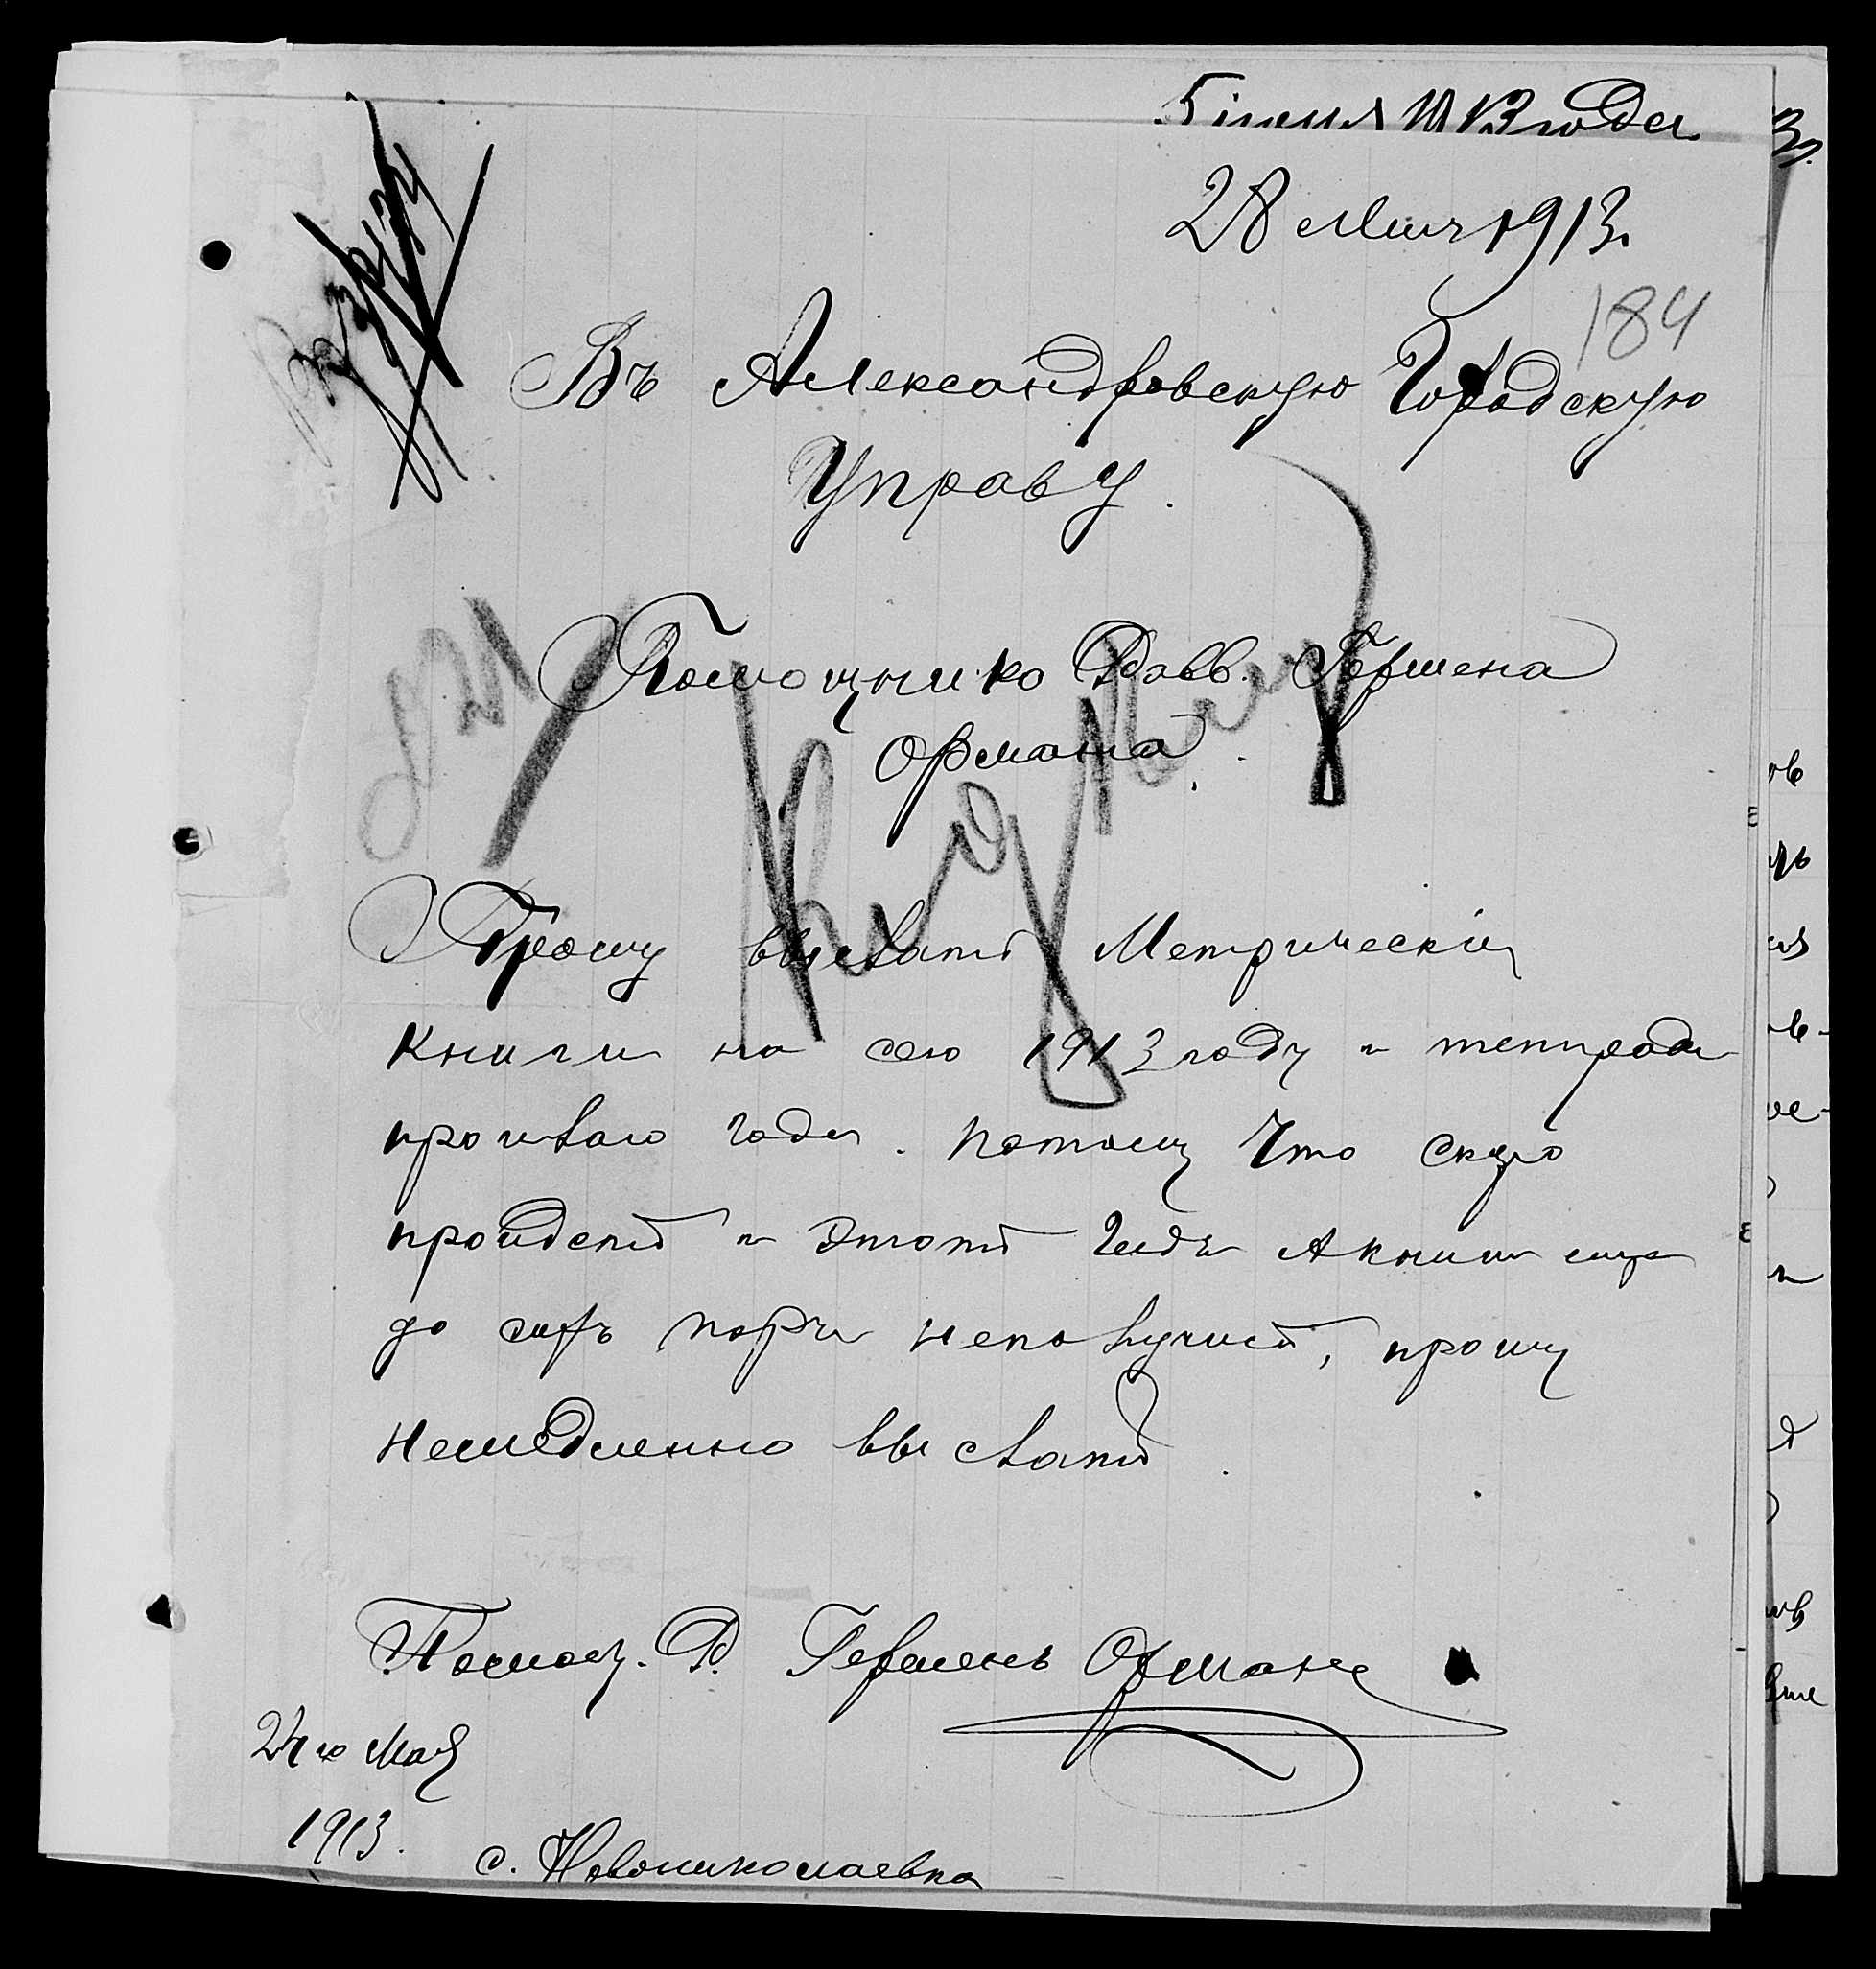 5 іюня 1913 года
28 Мая 1913.
184
Въ Александровскую Городскую
Управу.
Помощника Равв. Гершена
Ормана.
Прошу выслать Метрическія
книги на сего 1913 году и тетради
прошлаго года. потому что скоро
пройдетъ и этотъ годъ А книги еще
до сихъ поръ неполучилъ, прошу
немедленно выслать.
Помощ. Р. Гершенъ Орманъ
24го Мая
1913.
с. Новониколаевка